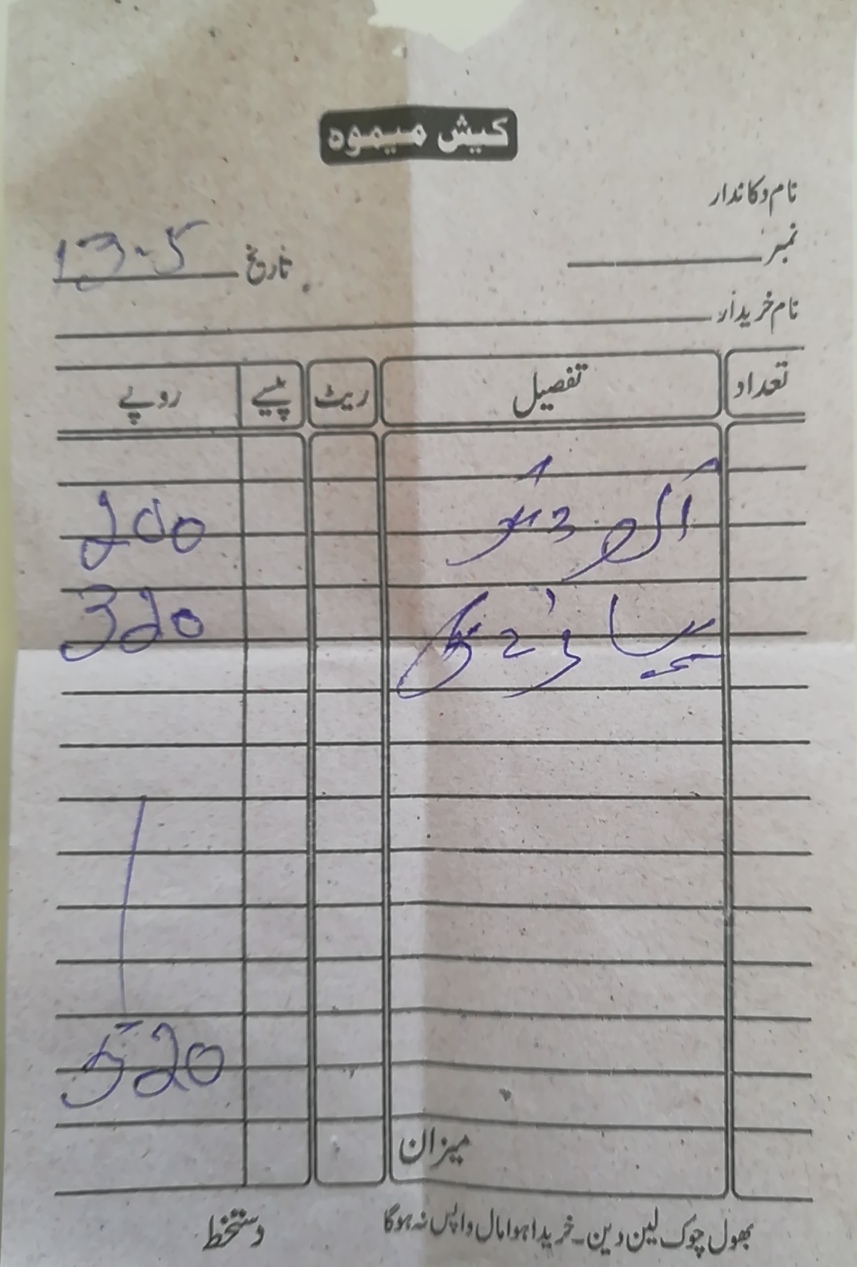 کیش میمو
نام دکاندار
نمبر
تاریخ 13-5
نام خریدار
تعداد تفصیل ریٹ پیسے روپے
200
320
520
میزان
بھول چوک لین دین۔ خریدا ہوا مال واپس نہ ہوگا
دستخط